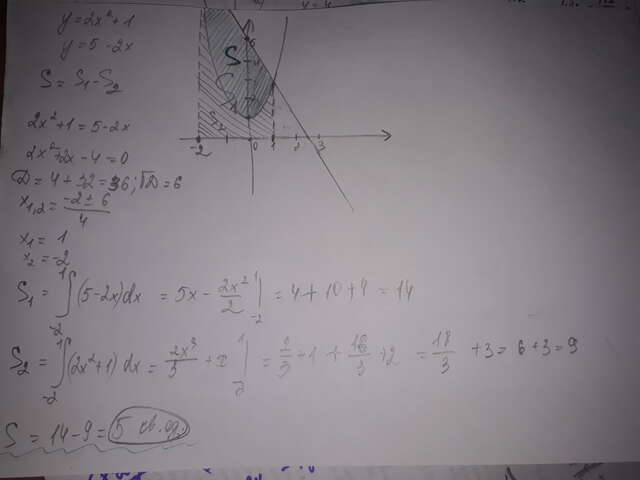 y = 2x² + 1
y = 5 - 2x
S = S₁ - S₂
2x² + 1 = 5 - 2x
2x² + 2x - 4 = 0
D = 4 + 32 = 36; √D = 6
x₁,₂ = (-2 ± 6)/4
x₁ = 1
x₂ = -2
S
S₂
-2 0 1 2 3
S₁ = ∫₋₂¹ (5-2x)dx = 5x - 2x²/2 |₋₂¹ = 4 + 10 + 4 = 14
S₂ = ∫₋₂¹ (2x²+1)dx = 2x³/3 + x |₋₂¹ = 2/3 + 1 + 16/3 + 2 = 18/3 + 3 = 6 + 3 = 9
S = 14 - 9 = 5 кв. ед.